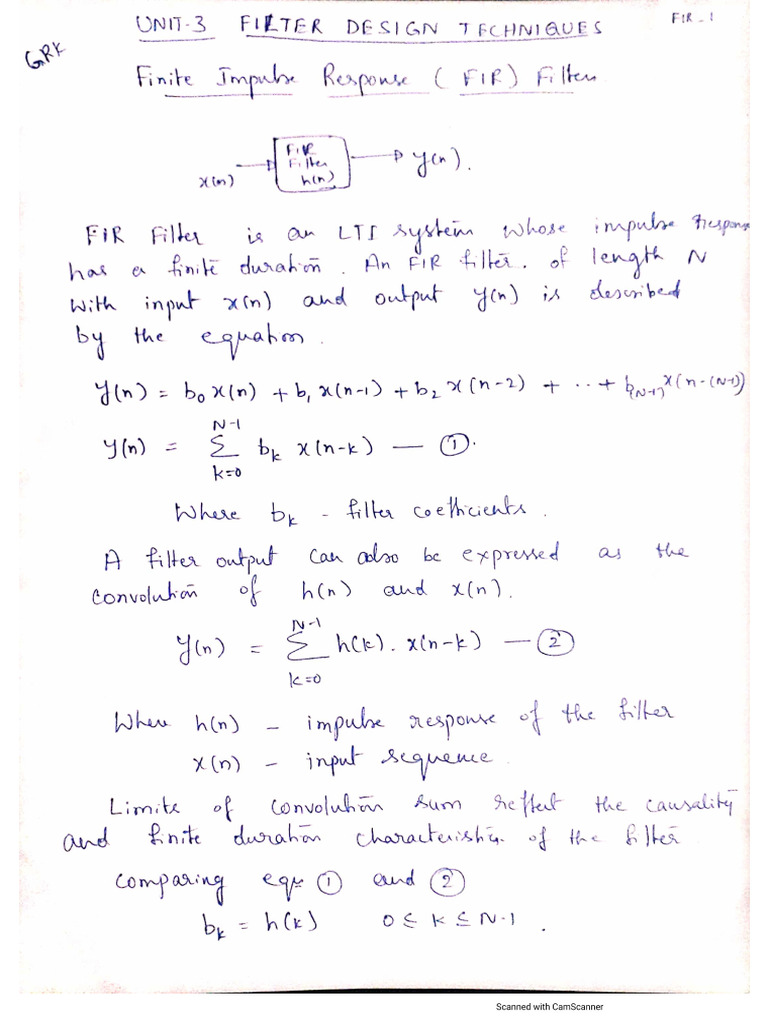 UNIT-3 FILTER DESIGN TECHNIQUES
FIR-1
GRK
Finite Impulse Response (FIR) Filters
x(n)
FIR
Filter
h(n)
y(n).
FIR Filter is an LTI system whose impulse Response
has a finite duration. An FIR filter. of length N
with input x(n) and output y(n) is described
by the equation.
y(n) = b₀x(n) + b₁x(n-1) + b₂x(n-2) + ... + b₍N-1₎x(n-(N-1))
y(n) = Σ_{k=0}^{N-1} bₖ x(n-k) — ①.
Where bₖ - filter coefficients.
A filter output can also be expressed as the
convolution of h(n) and x(n).
y(n) = Σ_{k=0}^{N-1} h(k). x(n-k) — ②
Where h(n) - impulse response of the filter
x(n) - input sequence.
Limits of convolution sum reflect the causality
and finite duration characteristics of the filter
comparing equ ① and ②
bₖ = h(k) 0 ≤ k ≤ N-1.
Scanned with CamScanner